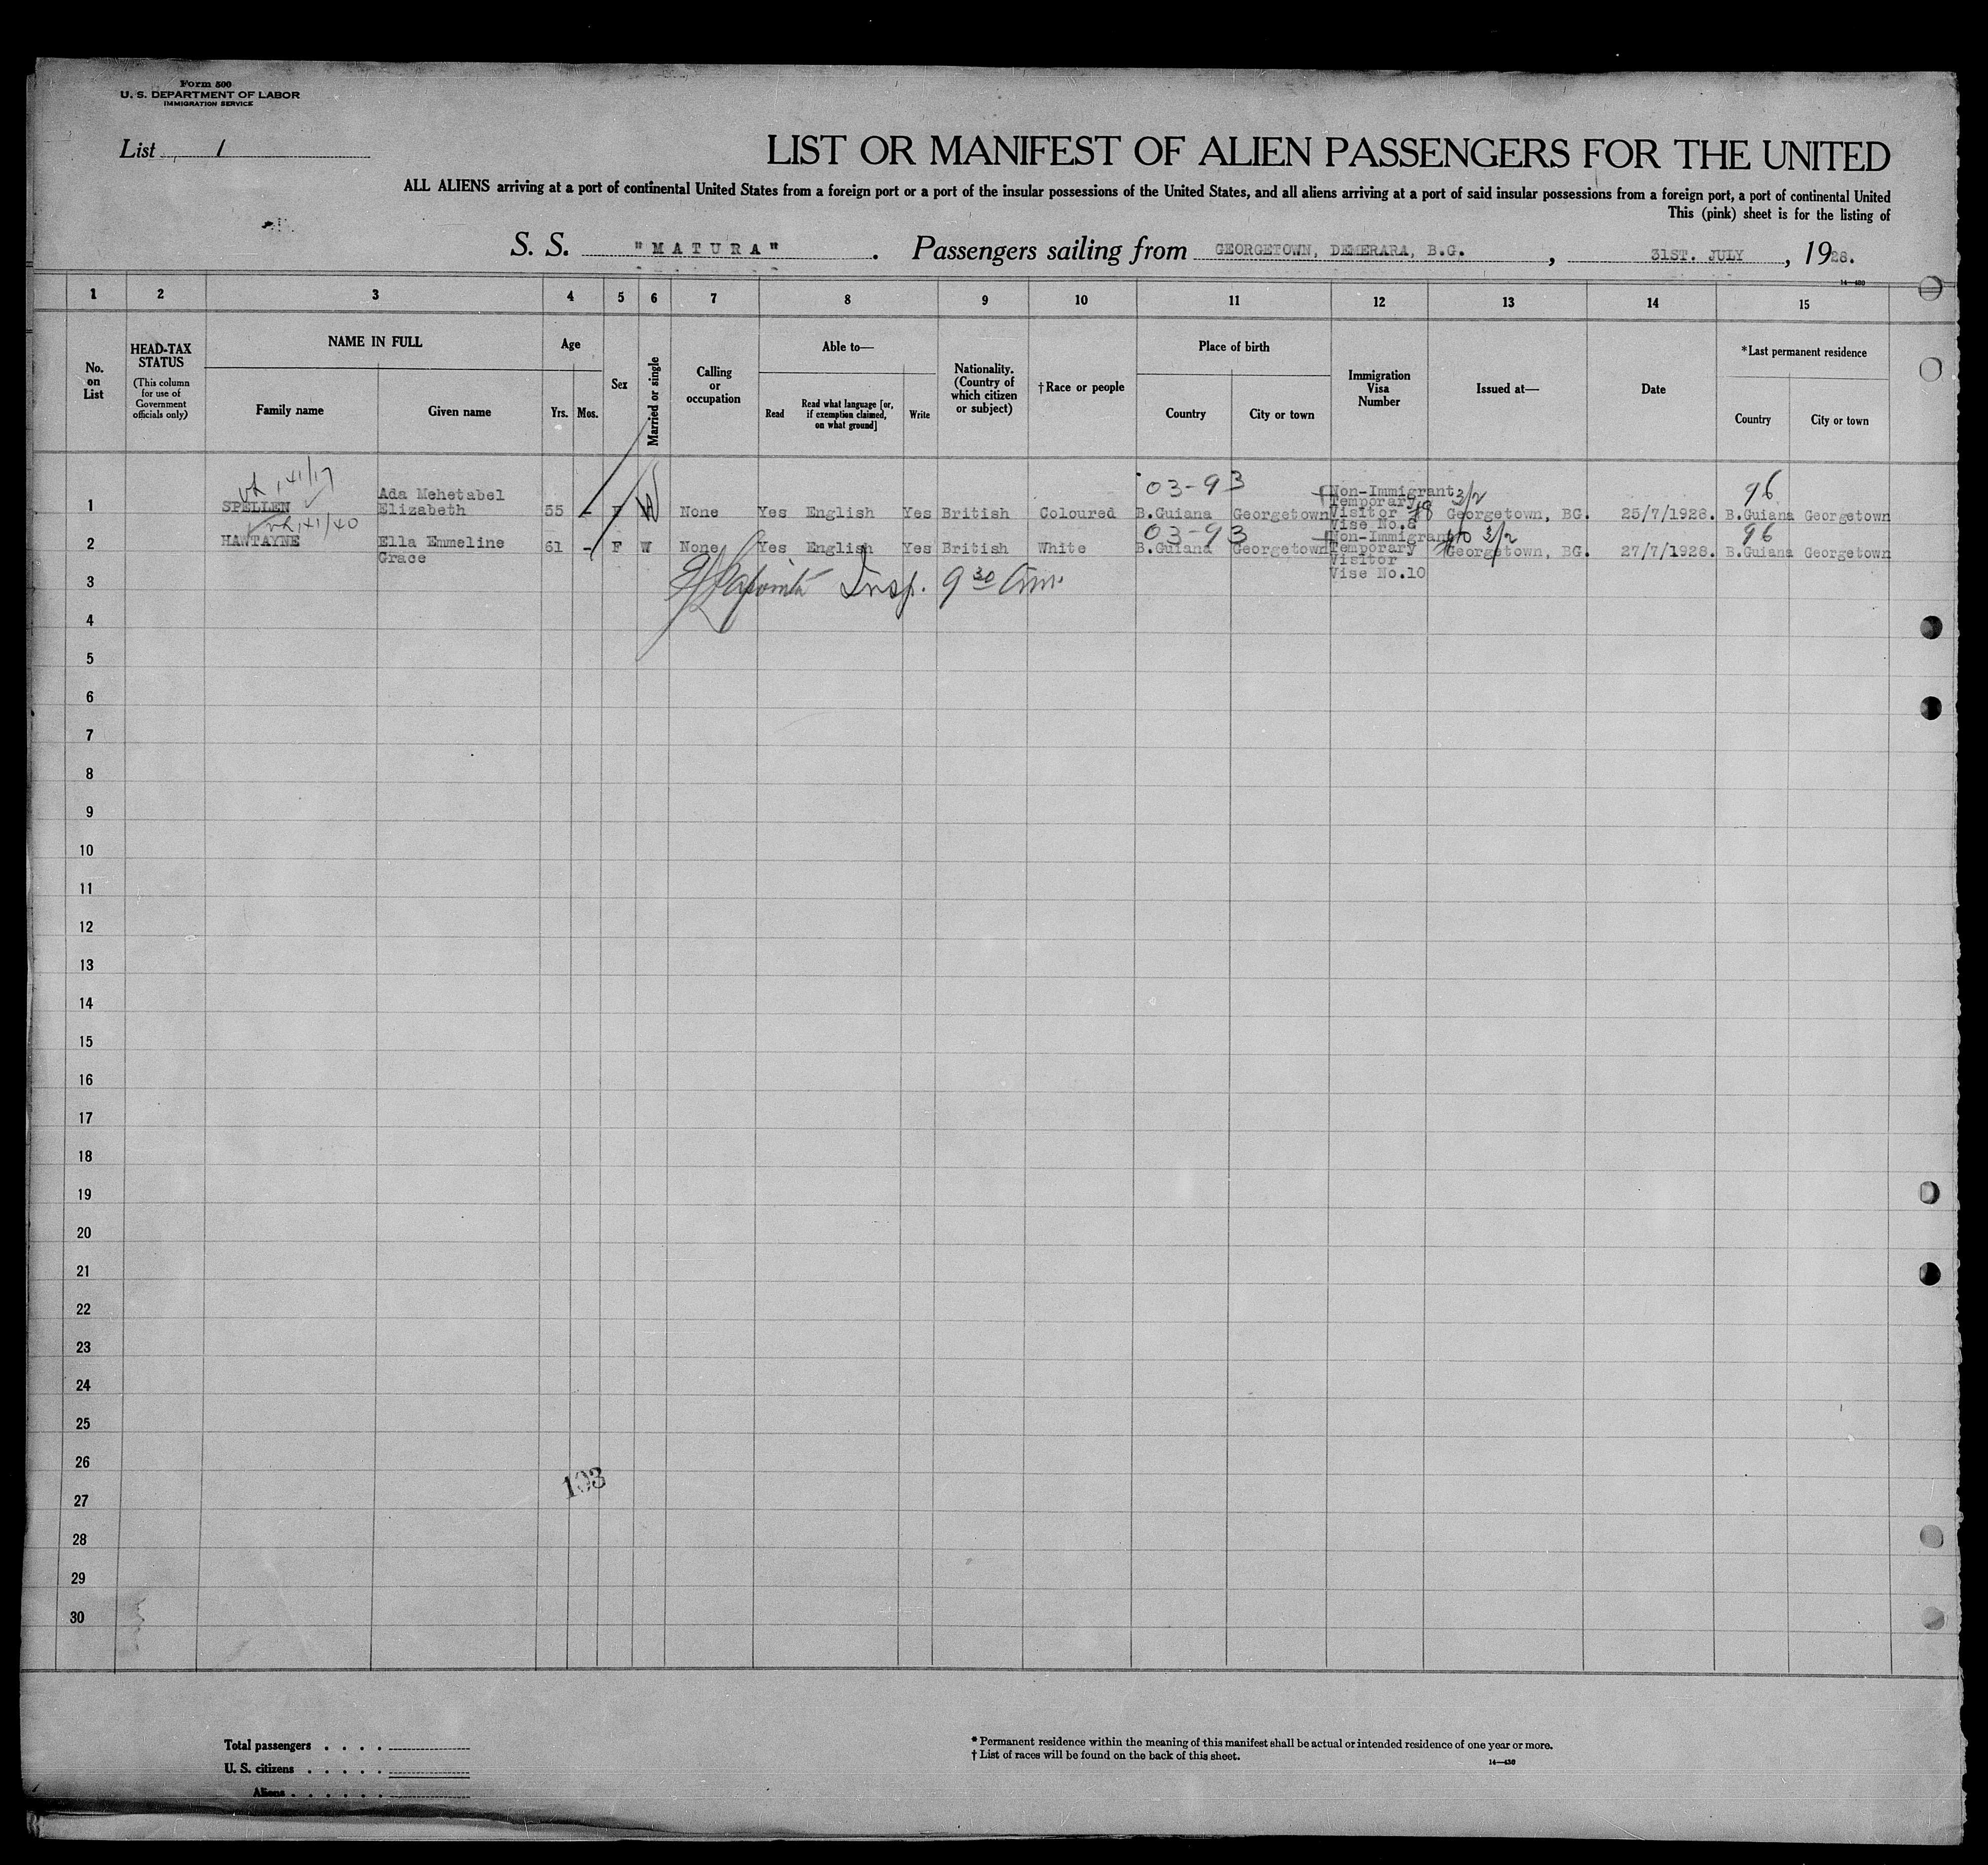 Form 500
U. S. DEPARTMENT OF LABOR
IMMIGRATION SERVICE
List 1
LIST OR MANIFEST OF ALIEN PASSENGERS FOR THE UNITED
ALL ALIENS arriving at a port of continental United States from a foreign port or a port of the insular possessions of the United States, and all aliens arriving at a port of said insular possessions from a foreign port, a port of continental United
This (pink) sheet is for the listing of
S. S. "MATURA" . Passengers sailing from GEORGETOWN, DEMERARA, B.G. , 31ST. JULY , 1928.
14—430
1 2 3 4 5 6 7 8 9 10 11 12 13 14 15
No. on List
HEAD-TAX STATUS (This column for use of Government officials only)
NAME IN FULL
Family name Given name
Age
Yrs. Mos.
Sex
Married or single
Calling or occupation
Able to—
Read Read what language [or, if exemption claimed, on what ground] Write
Nationality. (Country of which citizen or subject)
†Race or people
Place of birth
Country City or town
Immigration Visa Number
Issued at—
Date
*Last permanent residence
Country City or town
141/17 03-93 3/2 96
1 SPELLEN Ada Mehetabel Elizabeth 55 - F W None Yes English Yes British Coloured B.Guiana Georgetown Non-Immigrant Temporary Visitor Vise No.8 Georgetown, BG. 25/7/1928. B.Guiana Georgetown
141/40 03-93 3/2 96
2 HAWTAYNE Ella Emmeline Grace 61 - F W None Yes English Yes British White B.Guiana Georgetown Non-Immigrant Temporary Visitor Vise No.10 Georgetown, BG. 27/7/1928. B.Guiana Georgetown
3 Insp. 9 30 Am.
4
5
6
7
8
9
10
11
12
13
14
15
16
17
18
19
20
21
22
23
24
25
26
103
27
28
29
30
Total passengers . . . .
U. S. citizens . . . . .
Aliens . . . . . .
* Permanent residence within the meaning of this manifest shall be actual or intended residence of one year or more.
† List of races will be found on the back of this sheet.
14—430